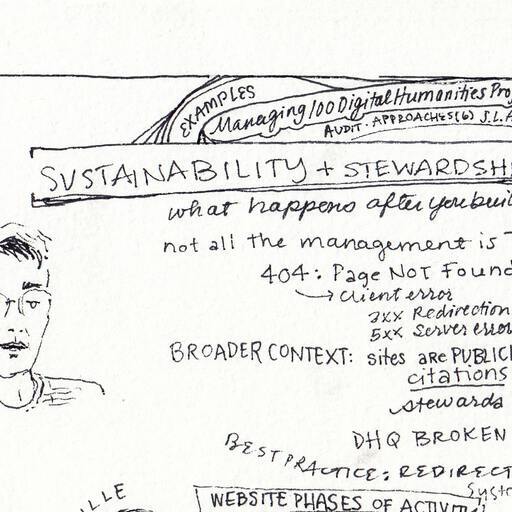 EXAMPLES
Managing 100 Digital Humanities Pro
AUDIT. APPROACHES(6) S.L.A
SUSTAINABILITY + STEWARDSHI
what happens after you buil
not all the management is T
404: Page NOT Found
client error
3xx Redirection
5xx Server error
BROADER CONTEXT: sites are PUBLIC
citations
stewards
DHQ BROKEN
BEST PRACTICE: REDIRECT
Syst
ILLE
WEBSITE PHASES OF ACTIVIT